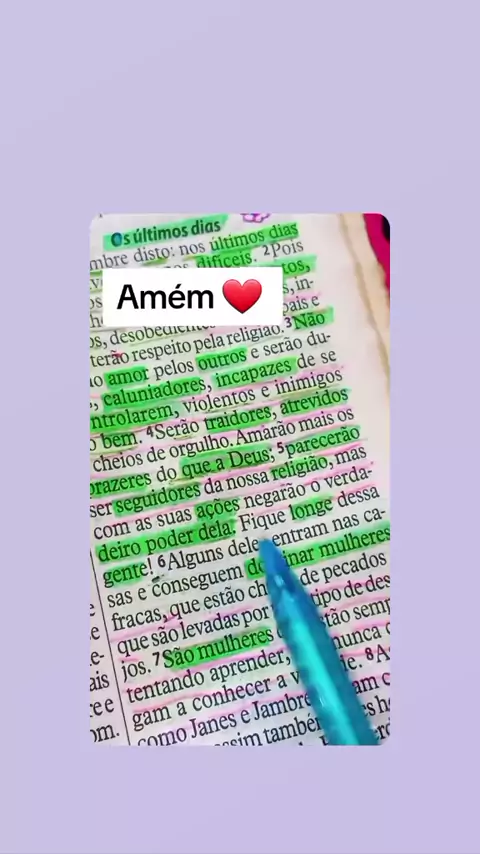 Os últimos dias
mbre disto: nos últimos dias
difíceis. ²Pois
tos,
Amém ❤️
s, in-
ais e
os, desobedient
terão respeito pela religião. ³Não
o amor pelos outros e serão du-
s, caluniadores, incapazes de se
ntrolarem, violentos e inimigos
o bem. ⁴Serão traidores, atrevidos
cheios de orgulho. Amarão mais os
prazeres do que a Deus; ⁵parecerão
ser seguidores da nossa religião, mas
com as suas ações negarão o verda-
deiro poder dela. Fique longe dessa
gente! ⁶Alguns deles entram nas ca-
sas e conseguem dominar mulheres
fracas, que estão ch de pecados
que são levadas por tipo de des
jos. ⁷São mulheres estão semp
tentando aprender, nunca c
gam a conhecer a v e. ⁸A
como Janes e Jambre am c
assim também es h
e
e-
ais
re e
om.